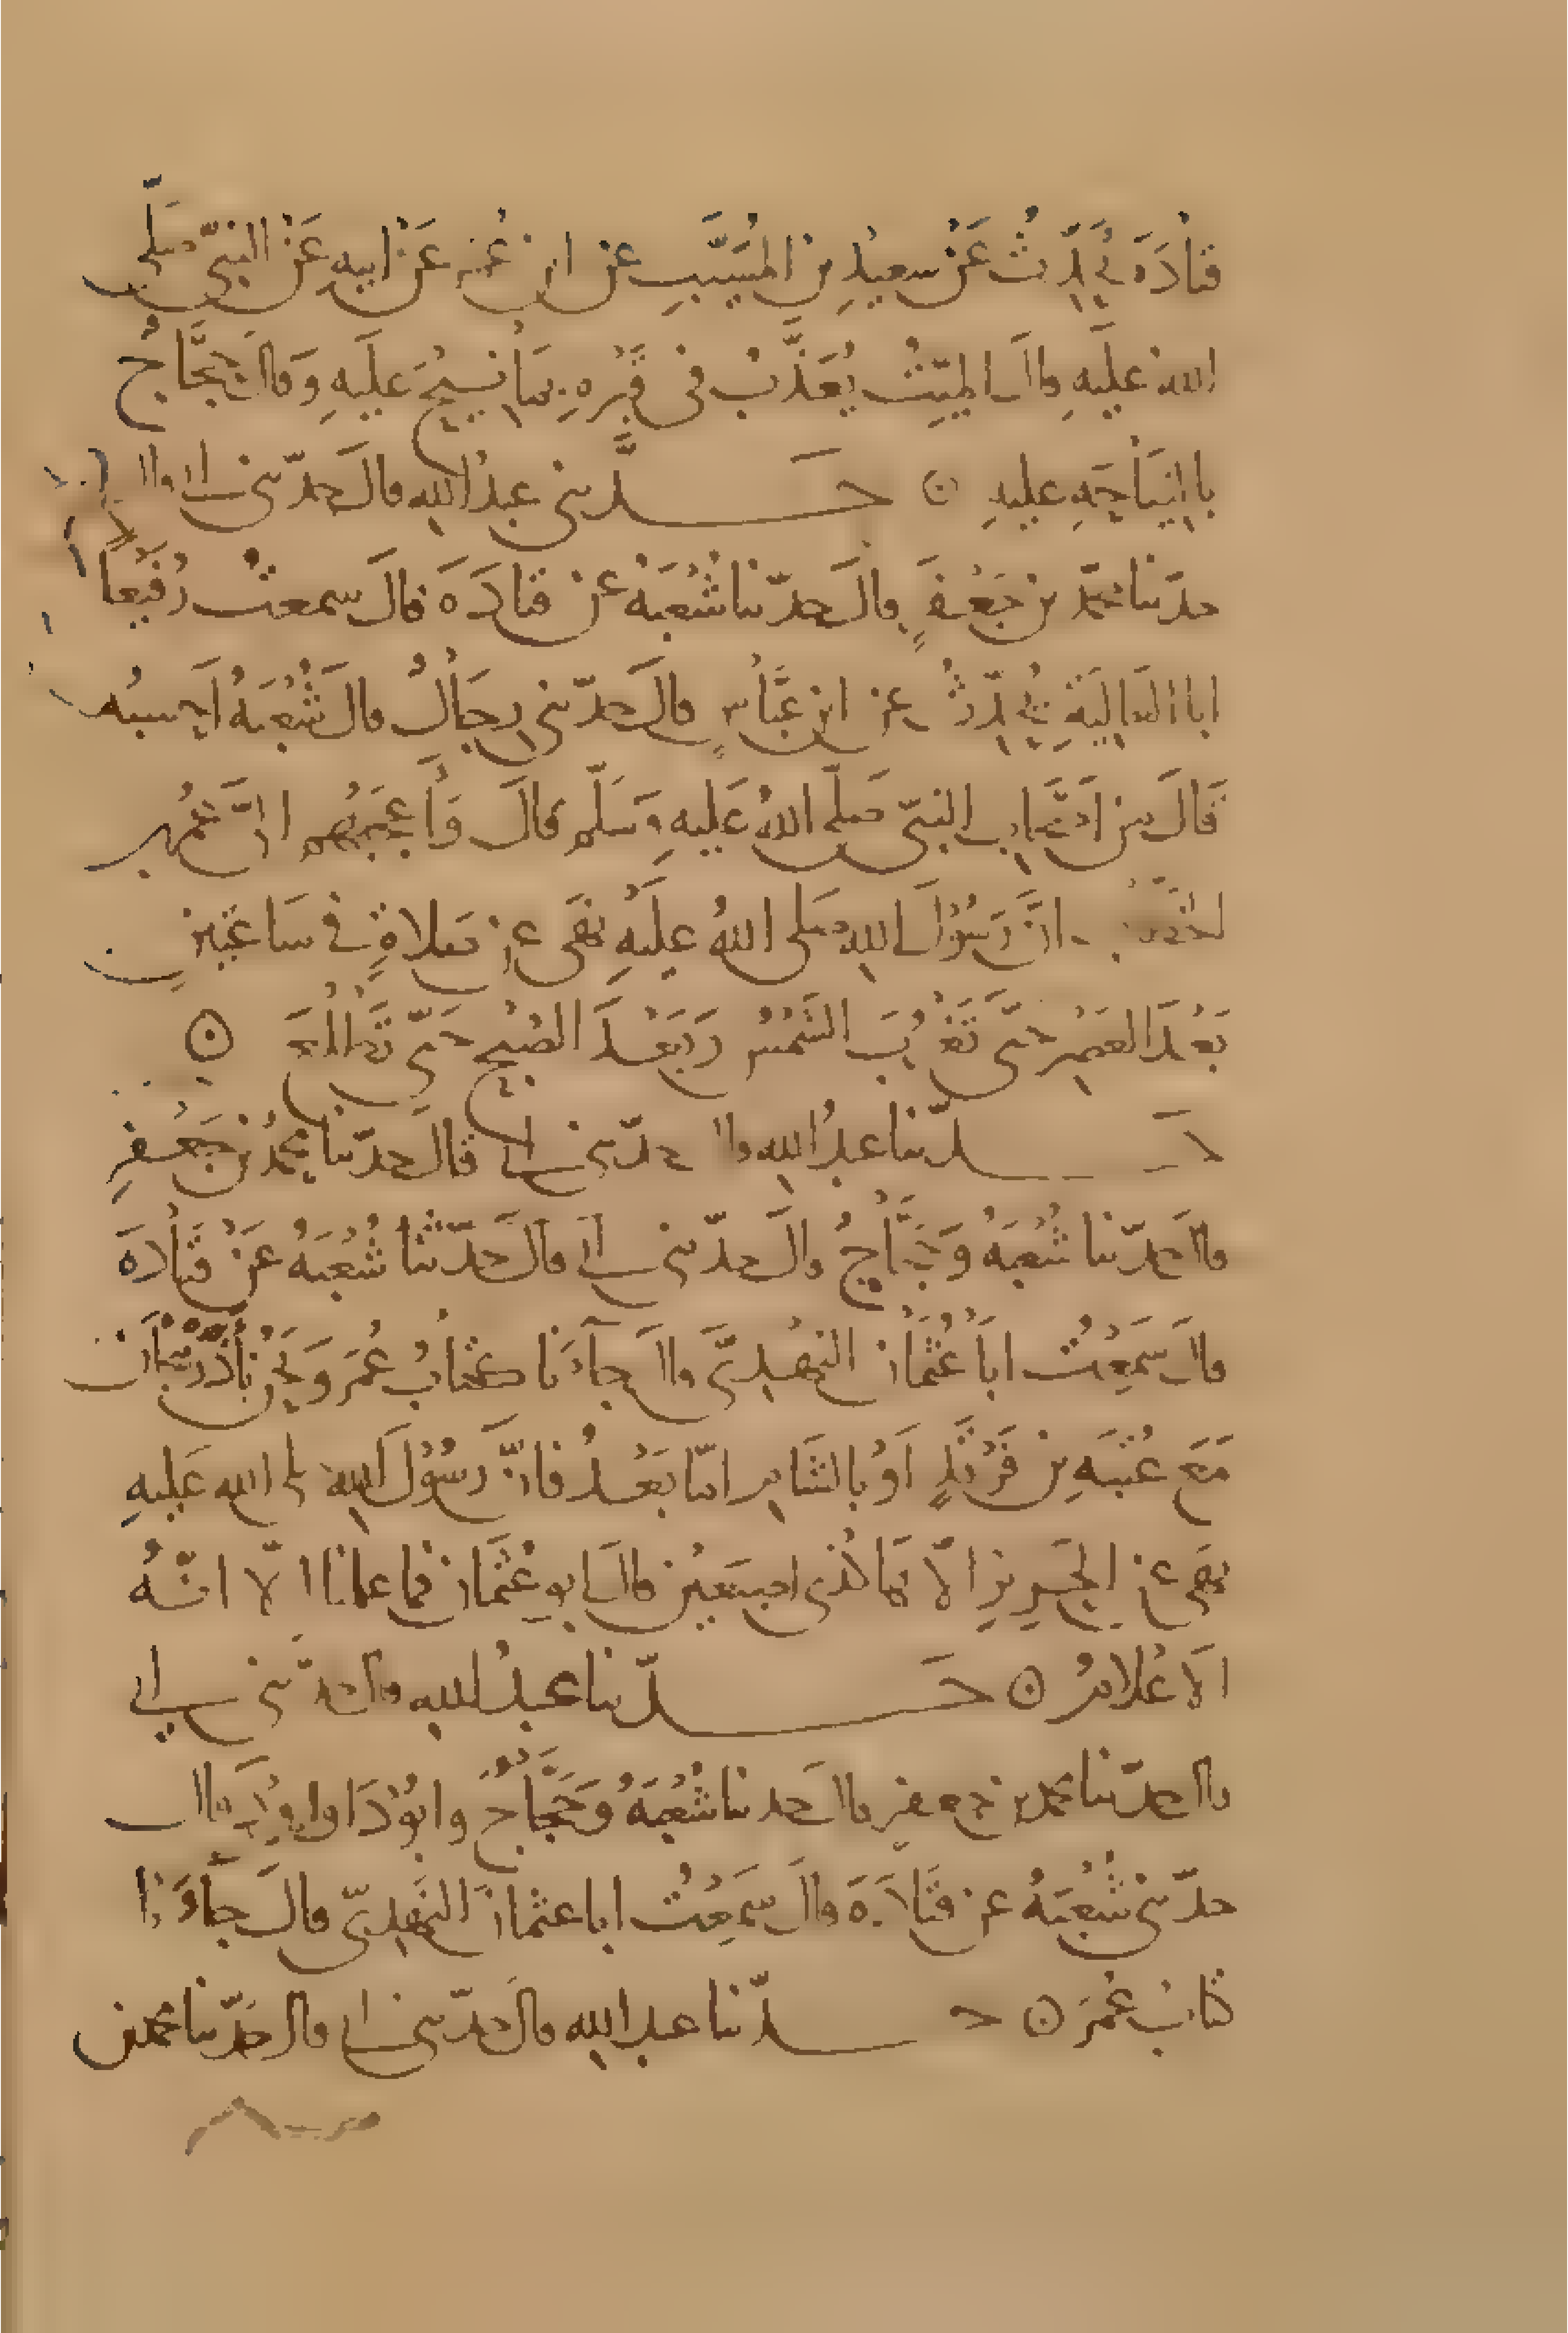 قتادَةَ يُحدِّثُ عَنْ سعيدِ بنِ المُسَيَّبِ عن ابن عُمَر عَنْ ابيهِ عَنْ النبيّ صَلّى
اللهُ عليَهِ قال الميّتُ يُعَذَّبُ فى قَبْرهِ بمَا نِيحَ عَليَهِ وَقال حَجَّاج
بالنيَاحَهِ عليهِ ○ حَدَّثنى عبدُ الله قال حَدّثنى ابى قال
حدّثنا محمّد بن جَعْفرٍ قال حَدّثنا شُعْبَهُ عن قتادَةَ قالَ سمعتُ رُفَيعا
ابا العَاليَةِ يُحدِّثُ عن ابن عَبَّاسٍ قال حَدّثنى رِجَالٌ قال شُعْبَهُ اَحسِبُه
قَالَ من اَصْحَابِ النبىّ صَلّى اللهُ عَليهِ وَسَلّم قالَ وَاَعجَبُهُم الىَّ عُمَر بن
الخطّاب انَّ رَسُوْلَ اللهِ صَلى اللهُ عليَهِ نهَى عن صَلاةٍ فى سَاعَتين
بَعْدَ العَصْرِ حَتّى تَغْرُبَ الشَمْسُ وَبَعْدَ الصُبْحِ حَتّى تَطْلُعَ ○
حَدّثنا عبدُ الله قال حدّثنى ابى قالَ حَدّثنا محمدُ بن جَعْفرِ
قال حَدّثنا شُعْبَهُ وَحَجَّاجُ قالَ حدّثنى ابى قالَ حَدّثنا شُعْبَهُ عَنْ قتَادَةَ
قالَ سَمِعْتُ ابَا عُثمَانَ النهْدِىَّ قالَ جآءَنا كتابُ عُمَر وَنحْنُ بأذَرْبيجَان
مَعَ عُتْبَهِ بن فَرْقَدٍ اَوْ بالشَامِ امّا بَعْدُ فانّ رَسُوْلَ اللهِ صلى الله عَليهِ
نهَى عن الحَرِيْرِ الّا هَاكذى اصبَعَيْن قال ابو عُثمَان فما علمنا الّا انّهُ
الاَعْلامُ ○ حَدّثنا عبدُ اللهِ قال حدّثنى ابى
قال حدّثنا محمد بن جعفر قال حَدثنا شُعْبَهُ وَحَجَّاجٌ وابوُ دَاود قال
حدّثنى شُعْبَهُ عن قتَادَةَ قالَ سَمِعْتُ ابا عثمانَ النَهْدِىّ قالَ جآءَنا
كتَابُ عُمَرَ ○ حَدّثنا عبد الله قال حَدّثنى ابى قال حَدّثنا محمد بن